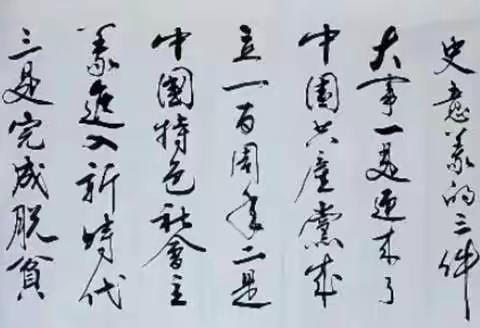 史意義的三件
大事一是迎来了
中国共產黨成
立一百周年二是
中國特色社會主
義進入新時代
三是完成脱貧